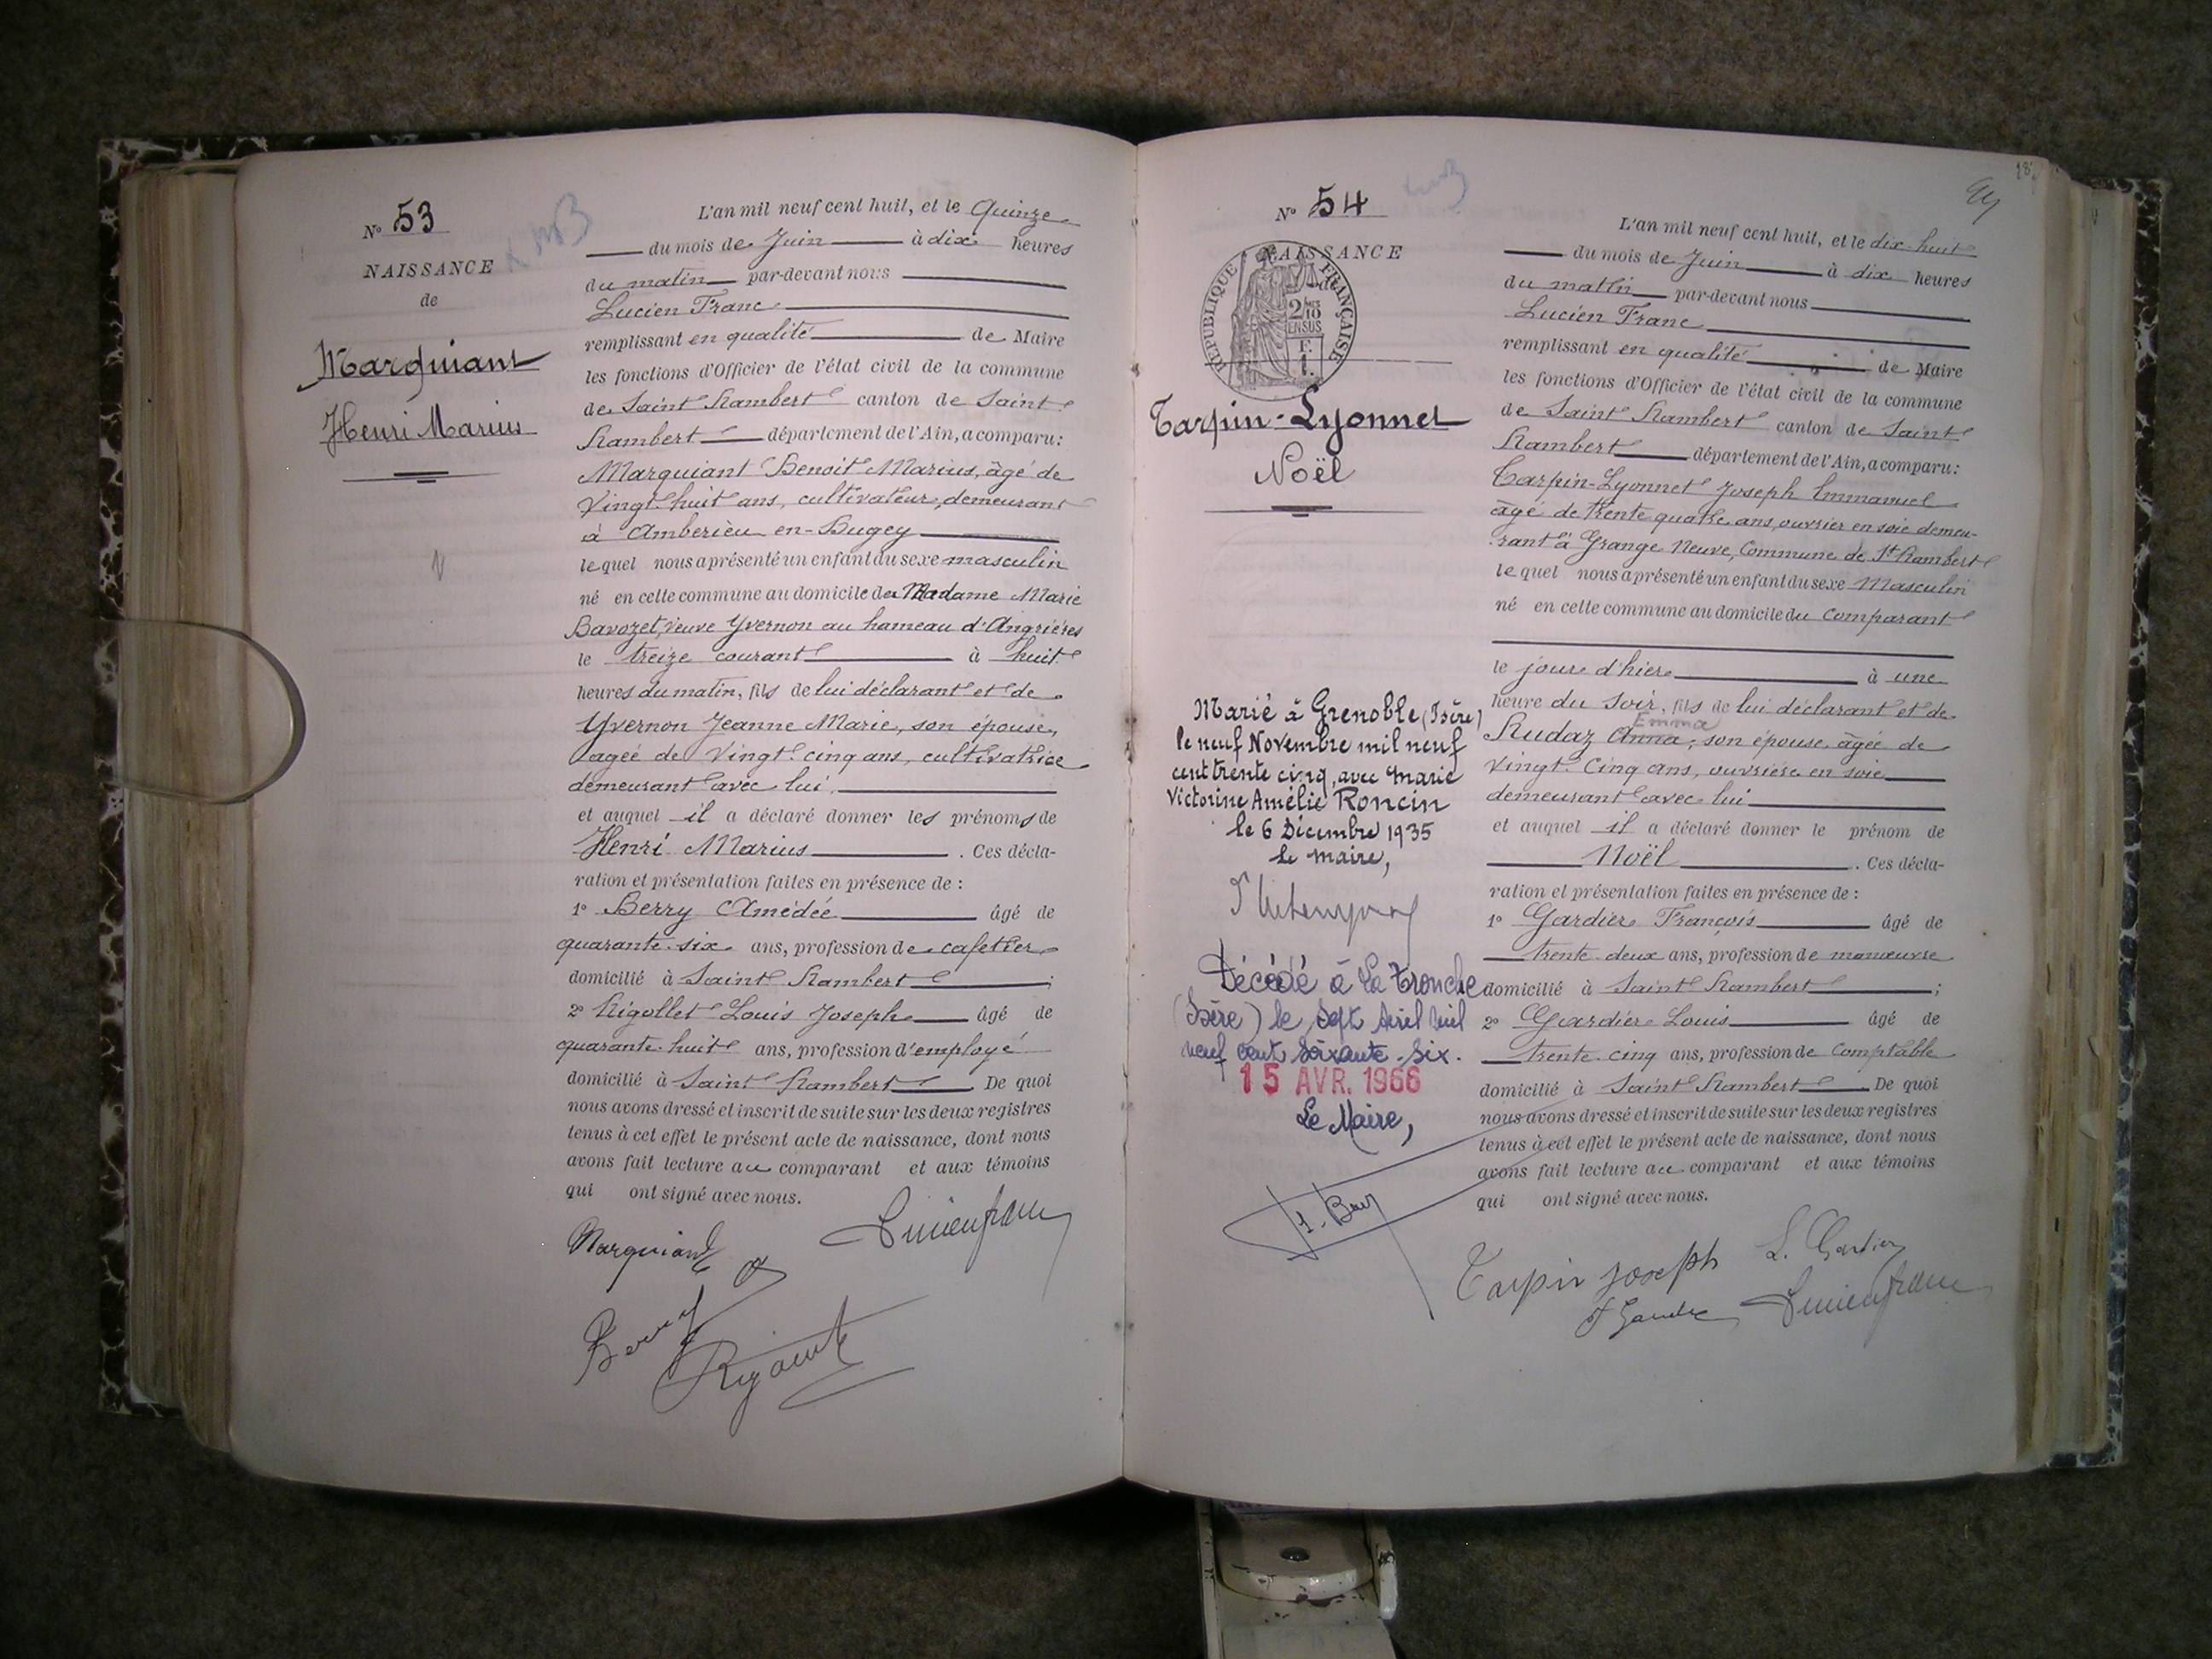 N° 53
NAISSANCE
de
Marquiant
Henri Marius
L'an mil neuf cent huit, et le Quinze
du mois de Juin à dix heures
du matin par-devant nous
Lucien Franc
remplissant en qualité de Maire
les fonctions d'Officier de l'état civil de la commune
de Saint Rambert canton de Saint
Rambert département de l'Ain, a comparu:
Marquiant Benoit Marius, âgé de
Vingt-huit ans, cultivateur, demeurant
à Ambérieu-en-Bugey
lequel nous a présenté un enfant du sexe masculin
né en cette commune au domicile de Madame Marie
Bavozet, veuve Yvernon au hameau d'Angrières
le treize courant à huit
heures du matin, fils de lui déclarant et de
Yvernon Jeanne Marie, son épouse,
agée de Vingt-cinq ans, cultivatrice
demeurant avec lui,
et auquel il a déclaré donner les prénoms de
Henri Marius. Ces décla-
ration et présentation faites en présence de :
1° Berry Amédée âgé de
quarante-six ans, profession de cafetier
domicilié à Saint Rambert ;
2° Rigollet Louis Joseph âgé de
quarante-huit ans, profession d'employé
domicilié à Saint Rambert De quoi
nous avons dressé et inscrit de suite sur les deux registres
tenus à cet effet le présent acte de naissance, dont nous
avons fait lecture au comparant et aux témoins
qui ont signé avec nous.
Marquiant Lucien Franc
Berry
N° 54
NAISSANCE
RÉPUBLIQUE FRANÇAISE
2/10
EN SUS
F.
1.
Tarpin-Lyonnet
Noël
Marié à Grenoble (Isère)
le neuf Novembre mil neuf
cent trente cinq, avec Marie
Victorine Amélie Roncin
le 6 Décembre 1935
le maire,
Décédé à La Tronche
(Isère) le sept Avril mil
neuf cent soixante-six.
15 AVR. 1966
Le Maire,
L'an mil neuf cent huit, et le dix-huit
du mois de Juin à dix heures
du matin par-devant nous
Lucien Franc
remplissant en qualité de Maire
les fonctions d'Officier de l'état civil de la commune
de Saint Rambert canton de Saint
Rambert département de l'Ain, a comparu:
Tarpin-Lyonnet Joseph Emmanuel
âgé de trente quatre ans, ouvrier en soie demeu-
rant à Grange Neuve, Commune de St Rambert
lequel nous a présenté un enfant du sexe Masculin
né en cette commune au domicile du comparant
le jour d'hier à une
heure du soir, fils de lui déclarant et de
Rudaz Anna Emma, son épouse, âgée de
vingt-cinq ans, ouvrière en soie
demeurant avec lui
et auquel il a déclaré donner le prénom de
Noël. Ces décla-
ration et présentation faites en présence de :
1° Gardier François âgé de
trente-deux ans, profession de manœuvre
domicilié à Saint Rambert ;
2° Gardier Louis âgé de
trente-cinq ans, profession de Comptable
domicilié à Saint Rambert De quoi
nous avons dressé et inscrit de suite sur les deux registres
tenus à cet effet le présent acte de naissance, dont nous
avons fait lecture au comparant et aux témoins
qui ont signé avec nous.
Tarpin Joseph L. Gardier
Lucien Franc